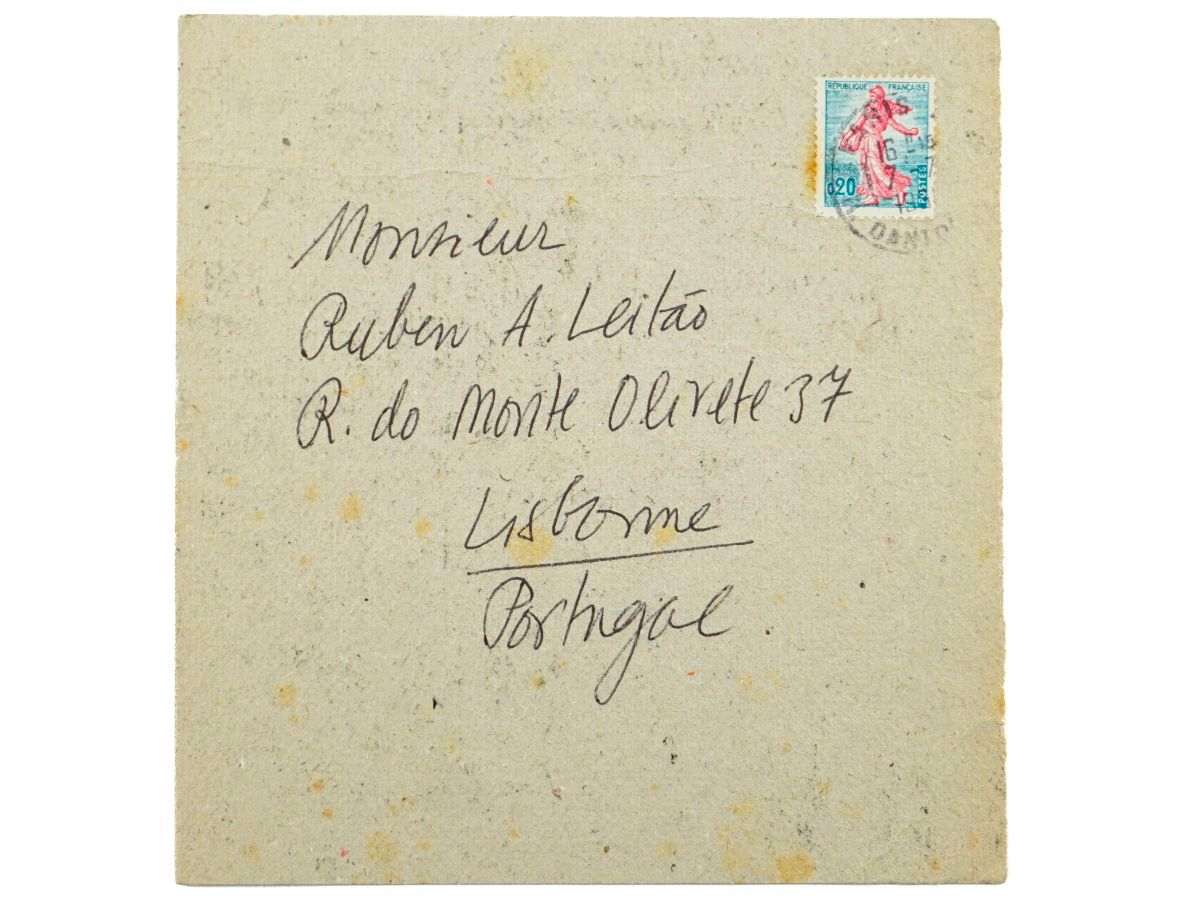 RÉPUBLIQUE FRANÇAISE
0,20
POSTES
16
7
Monsieur
Ruben A. Leitão
R. do Monte Olivete 37
Lisbonne
Portugal